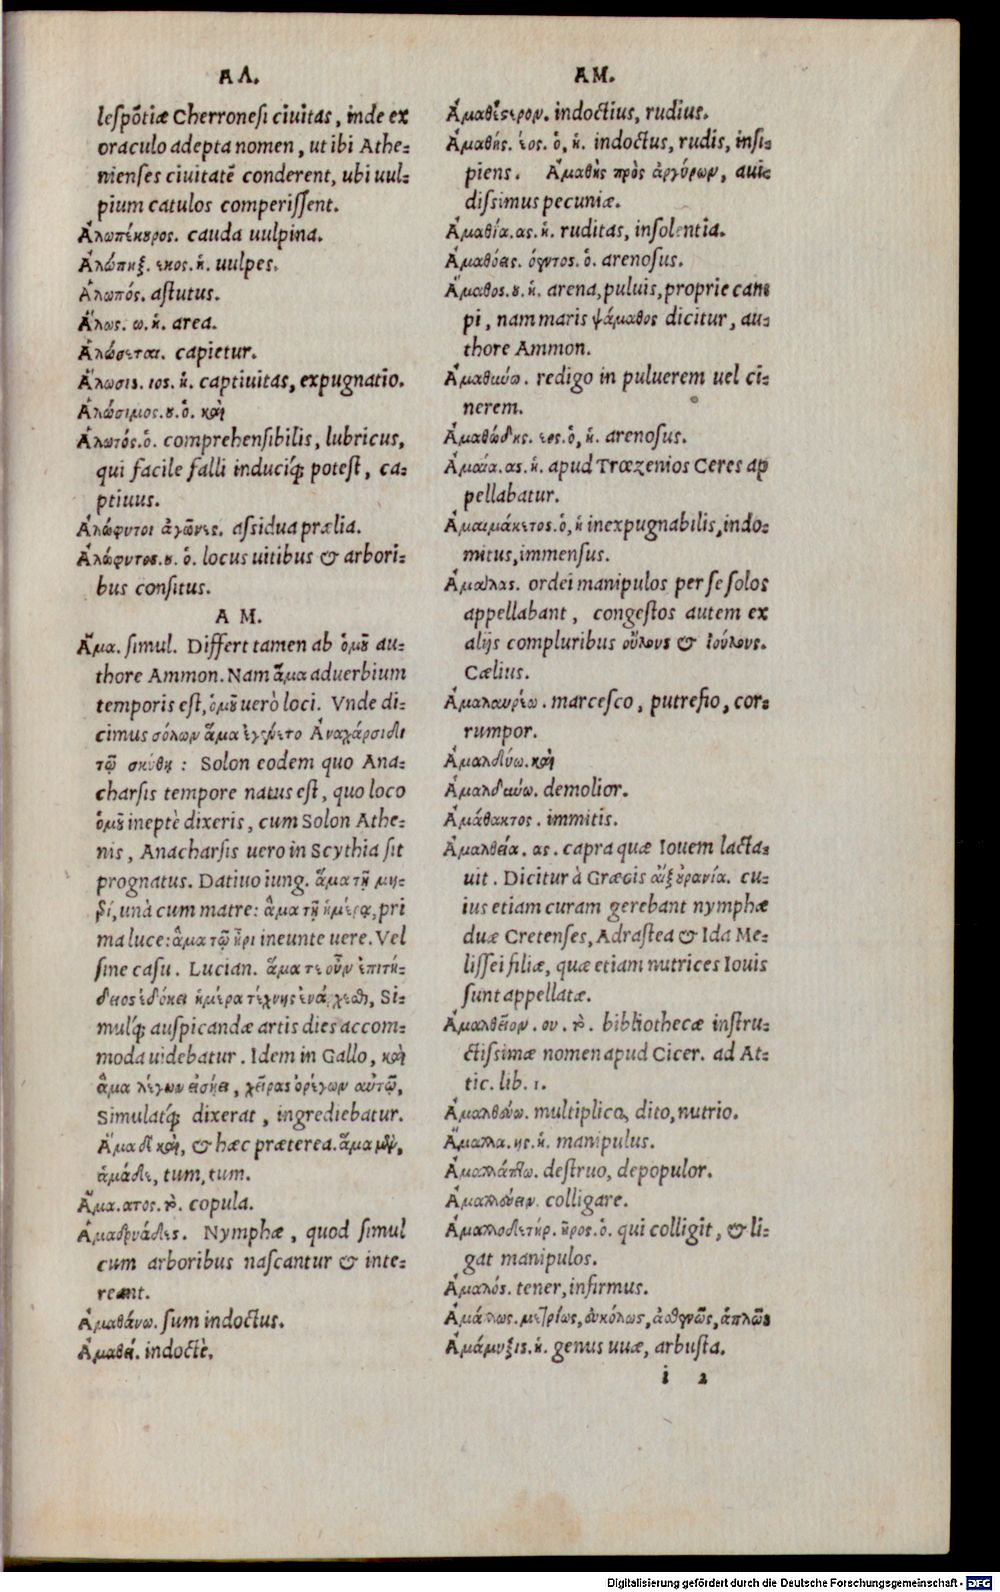 ΑΛ.
lespõtiæ Cherronesi ciuitas, inde ex
oraculo adepta nomen, ut ibi Athe-
nienses ciuitatẽ conderent, ubi uul-
pium catulos comperissent.
Ἀλωπέκουρος. cauda uulpina.
Ἀλώπηξ. εκος. ἡ. uulpes.
Ἀλωπός. astutus.
Ἅλως. ω. ἡ. area.
Ἁλώσεται. capietur.
Ἅλωσις. ιος. ἡ. captiuitas, expugnatio.
Ἁλώσιμος. ου. ὁ. καὶ
Ἁλωτός. ὁ. comprehensibilis, lubricus,
qui facile falli induciq́; potest, ca-
ptiuus.
Ἀλώφυτοι ἀγῶνες. assidua prælia.
Ἀλώφυτος. ου. ὁ. locus uitibus & arbori-
bus consitus.
Α Μ.
Ἅμα. simul. Differt tamen ab ὁμοῦ au-
thore Ammon. Nam ἅμα aduerbium
temporis est, ὁμοῦ uerò loci. Vnde di-
cimus σόλων ἅμα ἐγένετο Ἀναχάρσιδι
τῷ σκύθῃ: Solon eodem quo Ana-
charsis tempore natus est, quo loco
ὁμοῦ ineptè dixeris, cum Solon Athe-
nis, Anacharsis uero in Scythia sit
prognatus. Datiuo iung. ἅμα τῇ μη-
τρί, unà cum matre: ἅμα τῇ ἡμέρᾳ, pri
ma luce: ἅμα τῷ ἦρι ineunte uere. Vel
sine casu. Lucian. ἅμα τε οὖν ἐπιτή-
δειος ἐδόκει ἡμέρα τέχνης ἐνάρχεσθαι, Si-
mulq́; auspicandæ artis dies accom-
moda uidebatur. Idem in Gallo, καὶ
ἅμα λέγων εἰσῄει, χεῖρας ὀρέγων αὐτῷ,
Simulatq́; dixerat, ingrediebatur.
Ἅμα δὲ καὶ, & hæc præterea. ἅμα μὲν,
ἁμάδε, tum, tum.
Ἅμα. ατος. τὸ. copula.
Ἁμαδρυάδες. Nymphæ, quod simul
cum arboribus nascantur & inte-
reant.
Ἀμαθάνω. sum indoctus.
Ἀμαθεί. indoctè.
ΑΜ.
Ἀμαθέστερον. indoctius, rudius.
Ἀμαθής. έος. ὁ, ἡ. indoctus, rudis, insi-
piens. Ἀμαθὴς πρὸς ἀργύρων, aui-
dissimus pecuniæ.
Ἀμαθία. ας. ἡ. ruditas, insolentia.
Ἀμαθόεις. όεντος. ὁ. arenosus.
Ἄμαθος. ου. ἡ. arena, puluis, proprie cam
pi, nam maris ψάμαθος dicitur, au-
thore Ammon.
Ἀμαθύνω. redigo in puluerem uel ci-
nerem.
Ἀμαθώδης. εος. ὁ, ἡ. arenosus.
Ἀμαία. ας. ἡ. apud Trœzenios Ceres ap
pellabatur.
Ἀμαιμάκετος. ὁ, ἡ inexpugnabilis, indo-
mitus, immensus.
Ἀμαίλας. ordei manipulos per se solos
appellabant, congestos autem ex
alijs compluribus οὔλους & ἰούλους.
Cælius.
Ἀμαλαυρέω. marcesco, putrefio, cor-
rumpor.
Ἀμαλδύω. καὶ
Ἀμαλδύνω. demolior.
Ἀμάθακτος. immitis.
Ἀμαλθεία. ας. capra quæ Iouem lacta-
uit. Dicitur à Græcis αἲξ οὐρανία. cu-
ius etiam curam gerebant nymphæ
duæ Cretenses, Adrastea & Ida Me-
lissei filiæ, quæ etiam nutrices Iouis
sunt appellatæ.
Ἀμαλθεῖον. ου. τὸ. bibliothecæ instru-
ctissimæ nomen apud Cicer. ad At-
tic. lib. 1.
Ἀμαλθεύω. multiplico, dito, nutrio.
Ἄμαλλα. ης. ἡ. manipulus.
Ἀμαλάπτω. destruo, depopulor.
Ἀμαλλεύειν. colligare.
Ἀμαλλοδετήρ. ῆρος. ὁ. qui colligit, & li-
gat manipulos.
Ἀμαλός. tener, infirmus.
Ἀμάλως. μετρίως, εὐκόλως, ἀσθενῶς, ἁπλῶς
Ἀμάμυξις. ἡ. genus uuæ, arbusta.
i 2
Digitalisierung gefördert durch die Deutsche Forschungsgemeinschaft - DFG